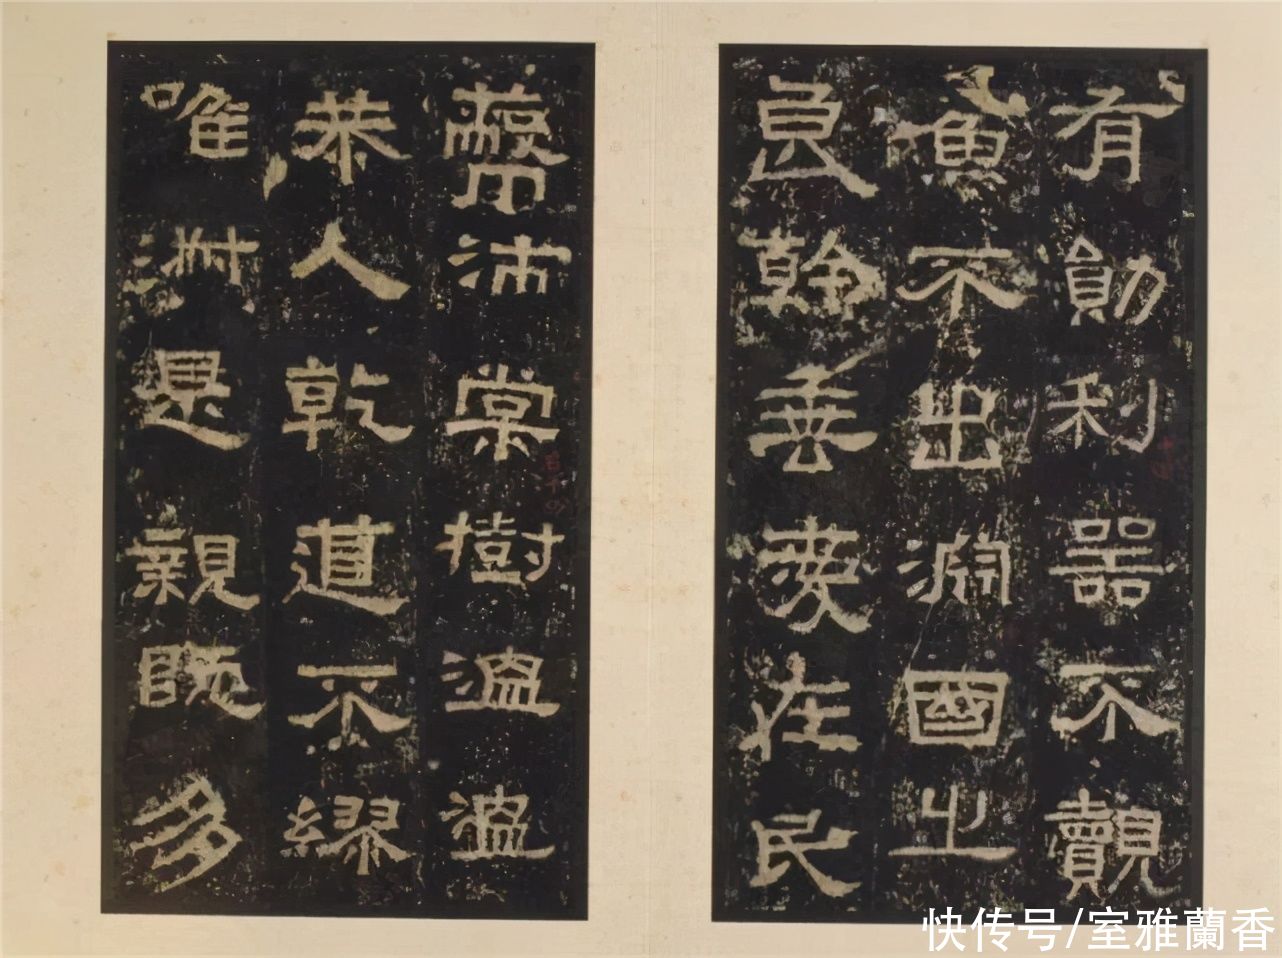 有勛利器不覿
魚不出淵國之
良幹垂愛在民
蔽沛棠樹溫溫
恭人乾道不繆
唯淑是親既多
快传号/室雅蘭香